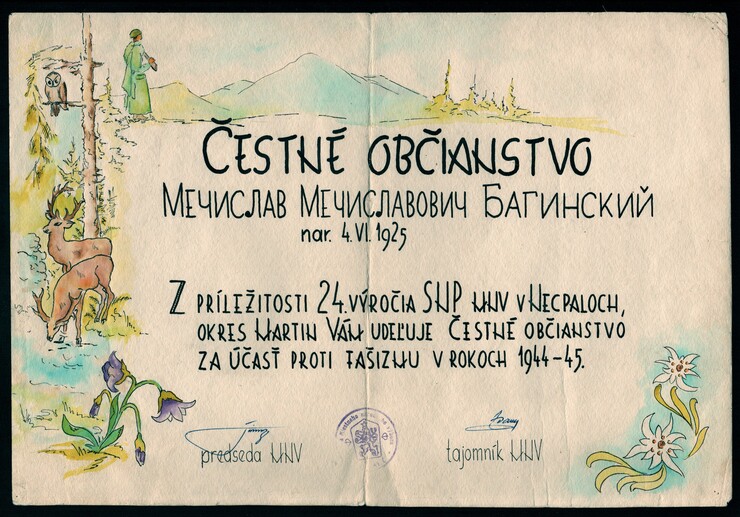 ČESTNÉ OBČIANSTVO
МЕЧИСЛАВ МЕЧИСЛАВОВИЧ БАГИНСКИЙ
nar. 4. VI. 1925
Z PRÍLEŽITOSTI 24. VÝROČIA SNP MNV V NECPALOCH,
OKRES MARTIN VÁM UDEĽUJE ČESTNÉ OBČIANSTVO
ZA ÚČASŤ PROTI FAŠIZMU V ROKOCH 1944-45.
predseda MNV
tajomník MNV